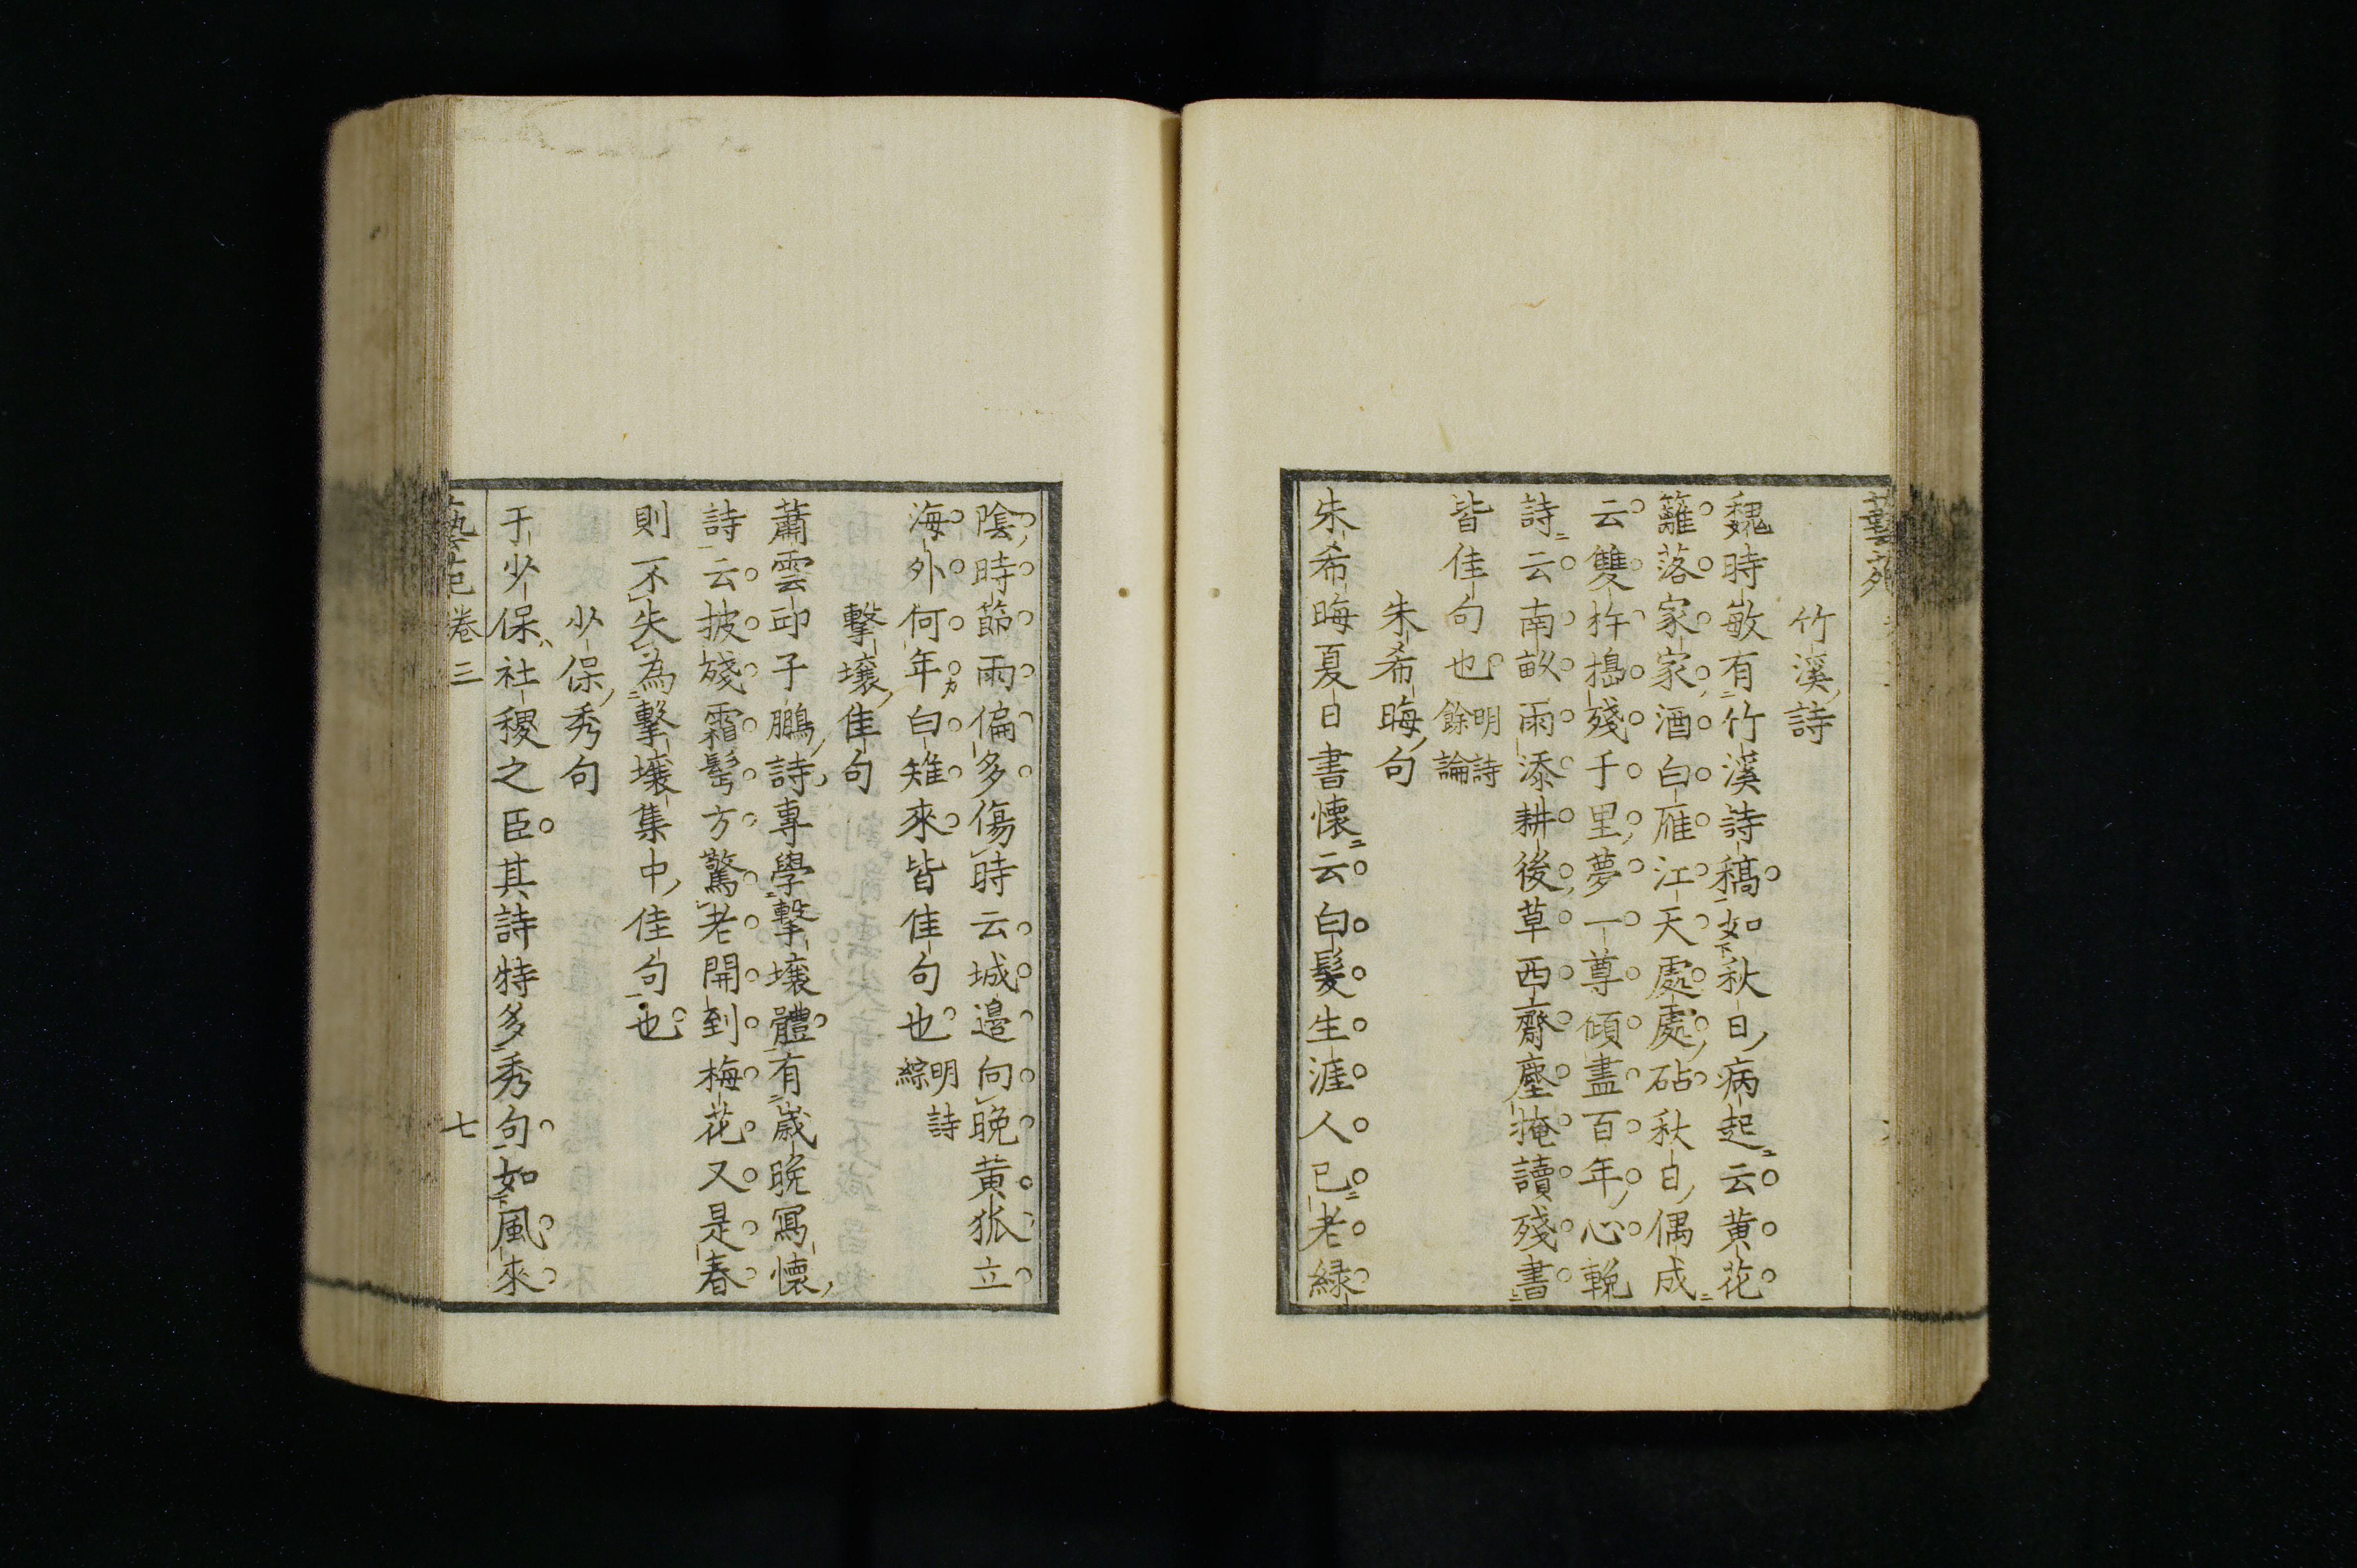 竹溪詩
魏時敏有竹溪詩稿如秋日病起云黄花
籬落家家酒白雁江天處處砧秋日偶成
云雙杵搗殘千里夢一尊傾盡百年心輓
詩云南畝雨添耕後草西齋塵掩讀殘書
皆佳句也明詩
餘論
朱希晦句
朱希晦夏日書懷云白髮生涯人已老緑
陰時節雨偏多傷時云城邉向晚黄狐立
海外何年白雉來皆佳句也明詩
綜
擊壤佳句
蕭雲卭子鵬詩專學擊壤體有嵗晩寫懷
詩云披殘霜髩方驚老開到梅花又是春
則不失為擊壤集中佳句也
少保秀句
于少保社稷之臣其詩特多秀句如風來
藝苑卷三
七